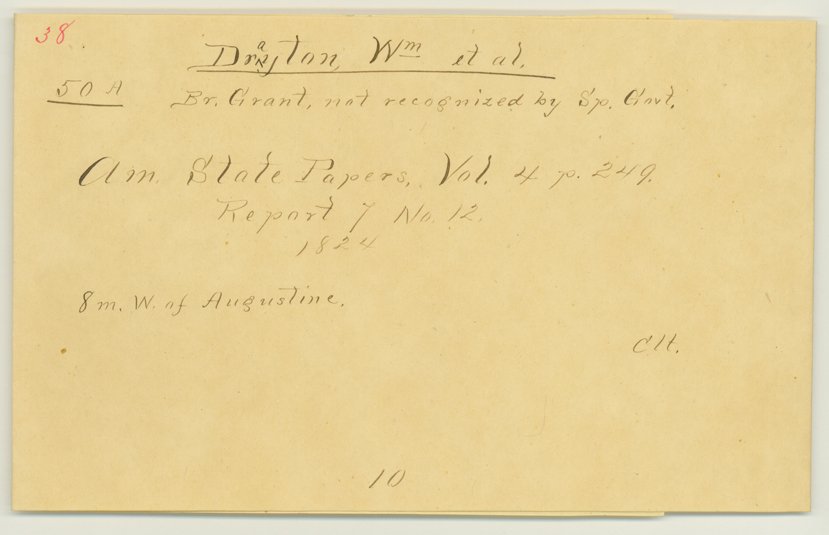 38
Drayton, Wm et al.
50 A
Br. Grant, not recognized by Sp. Govt.
Am. State Papers, Vol. 4 p. 249.
Report 7 No. 12.
1824
8 m. W. of Augustine.
10